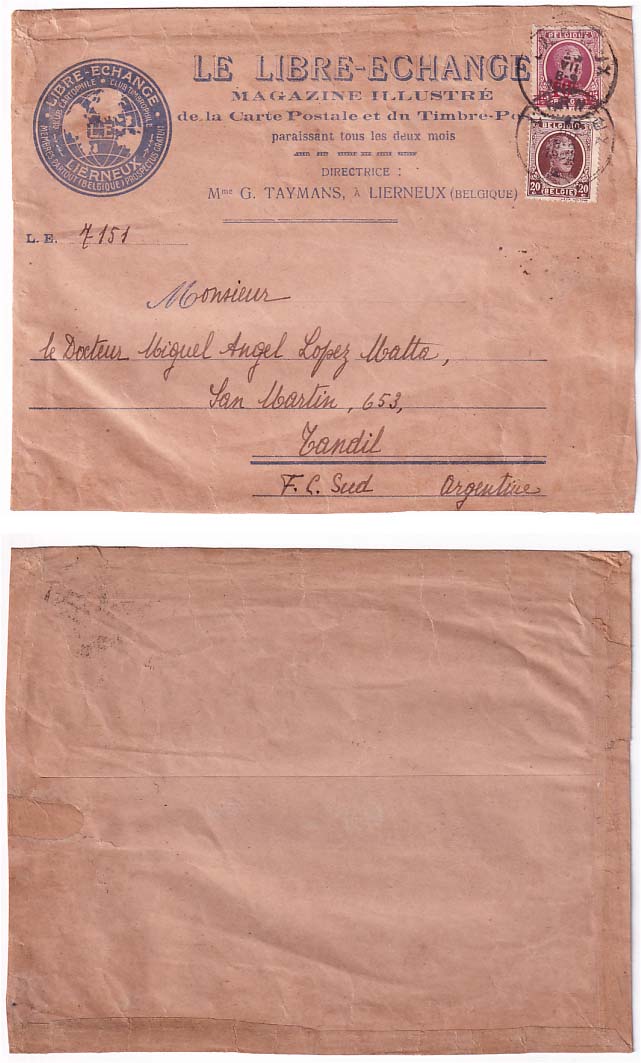 LIBRE-ECHANGE
CLUB CARTOPHILE • CLUB TIMBROPHILE
LIERNEUX
MEMBRES PARTOUT (BELGIQUE) PROSPECTUS GRATUIT
LE LIBRE-ECHANGE
MAGAZINE ILLUSTRÉ
de la Carte Postale et du Timbre-Po
paraissant tous les deux mois
DIRECTRICE :
Mme G. TAYMANS, à LIERNEUX (BELGIQUE)
BELGIQUE
BELGIQUE
20 BELGIË 20
L. E. 7151
Monsieur
le Docteur Miguel Angel Lopez Matta,
San Martin, 653,
Tandil
F. C. Sud Argentine